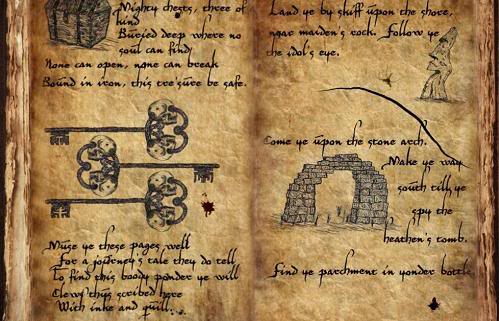 Mighty chests, three of
kind
Buried deep where no
soul can find
None can open, none can break
Bound in iron, this tresure be safe.
Muse ye these pages well
For a journey's tale they do tell
To find this booty ponder ye will
Clews thus scribed here
With inke and quill...
Land ye by skiff upon the shore,
near maiden's rock. Follow ye
the idol's eye.
Come ye upon the stone arch.
Make ye way
south till ye
spy the
heathen's tomb.
Find ye parchment in yonder bottle